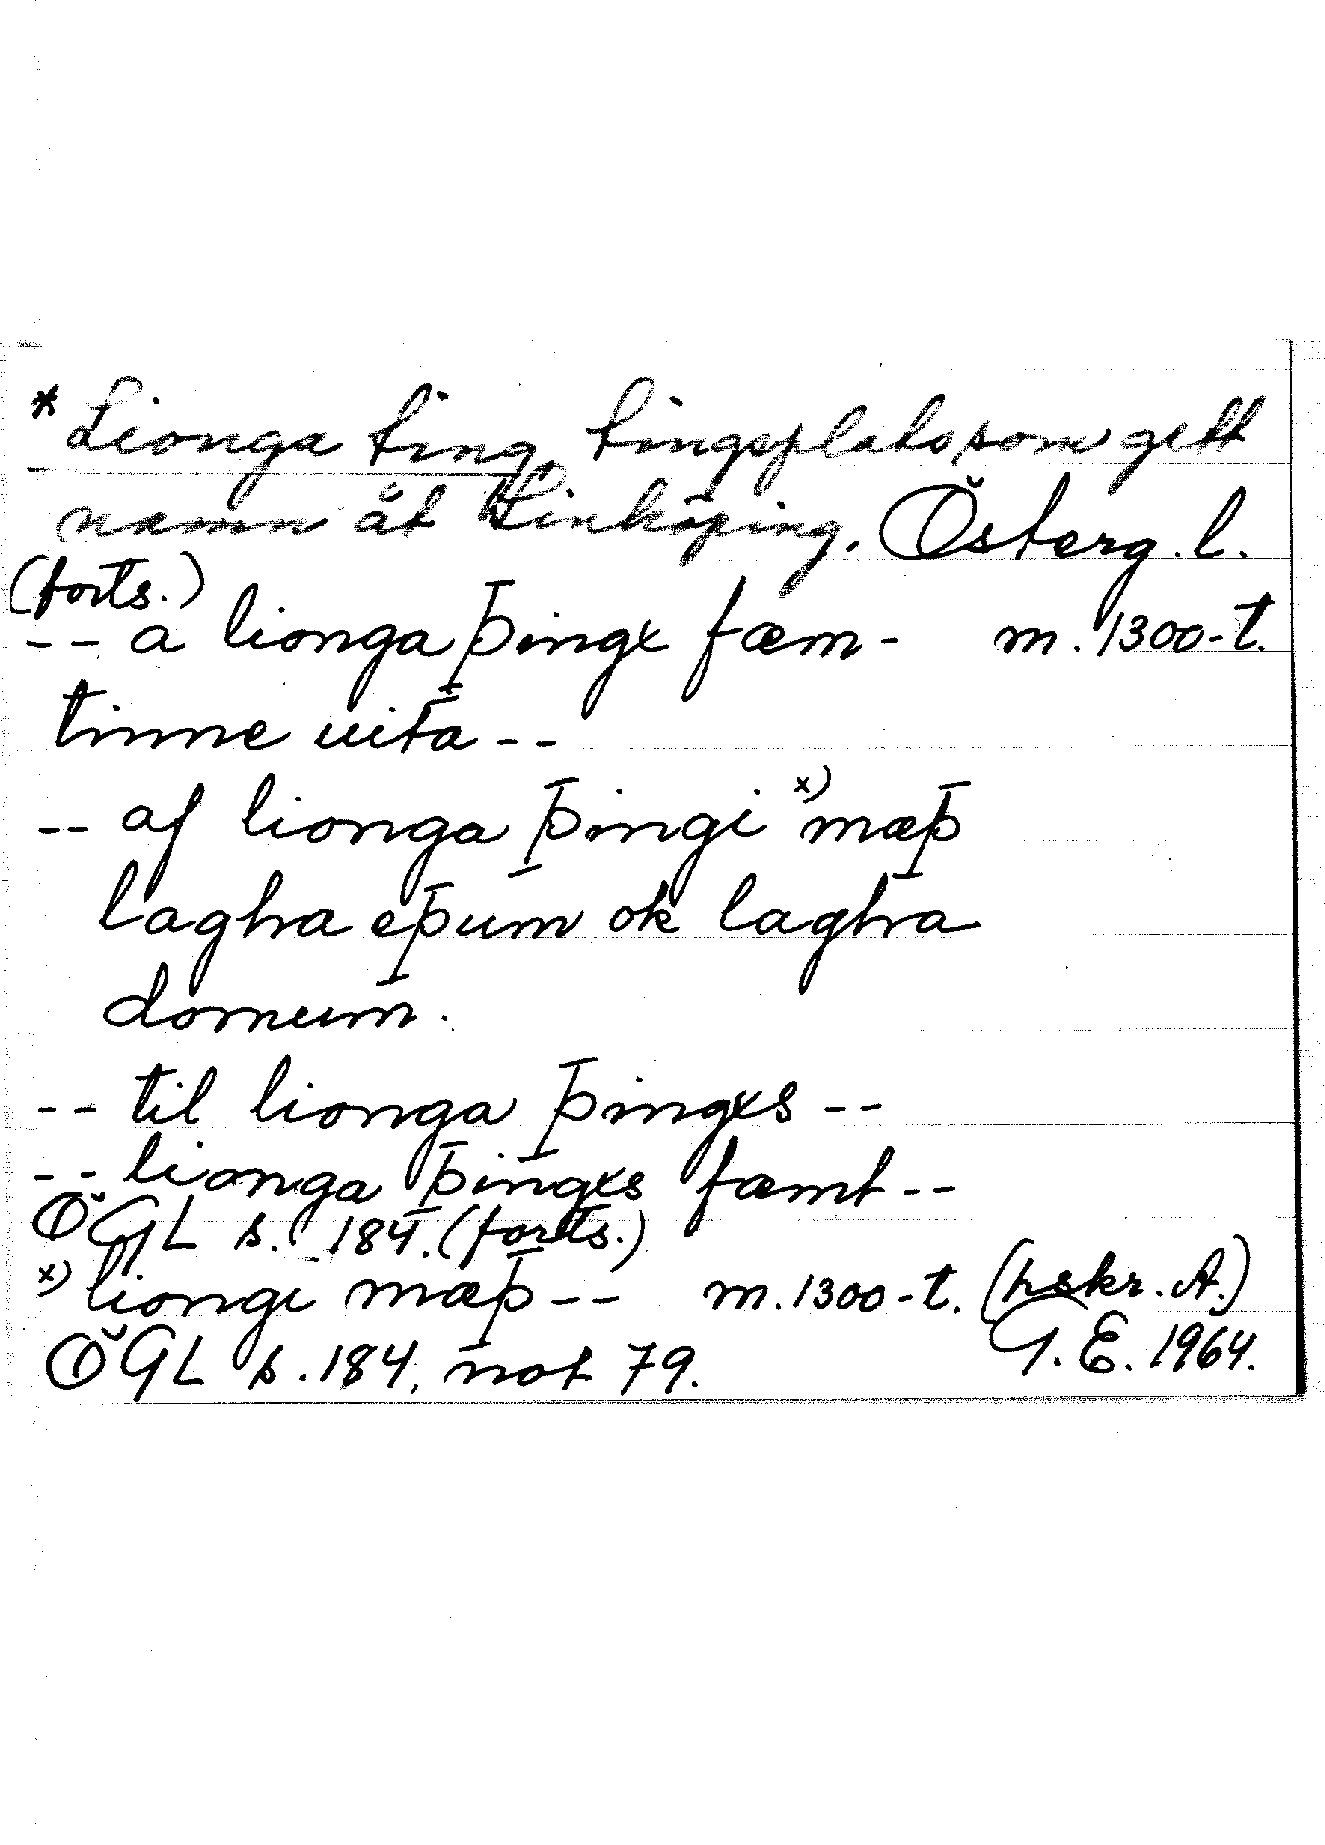 * Lionga ting, tingsplats som gett
namn åt Linköping. Österg. l.
(forts.)
-- a lionga þingx fæm- m. 1300-t.
tinne uita --
-- af lionga þingi x) mæþ
lagha eþum ok lagha
domum.
-- til lionga þingxs --
-- lionga þingxs fæmt --
ÖGL s. 184. (forts.)
x) liongi mæþ -- m. 1300-t. (hskr. A.)
ÖGL s. 184, not 79. G. E. 1964.